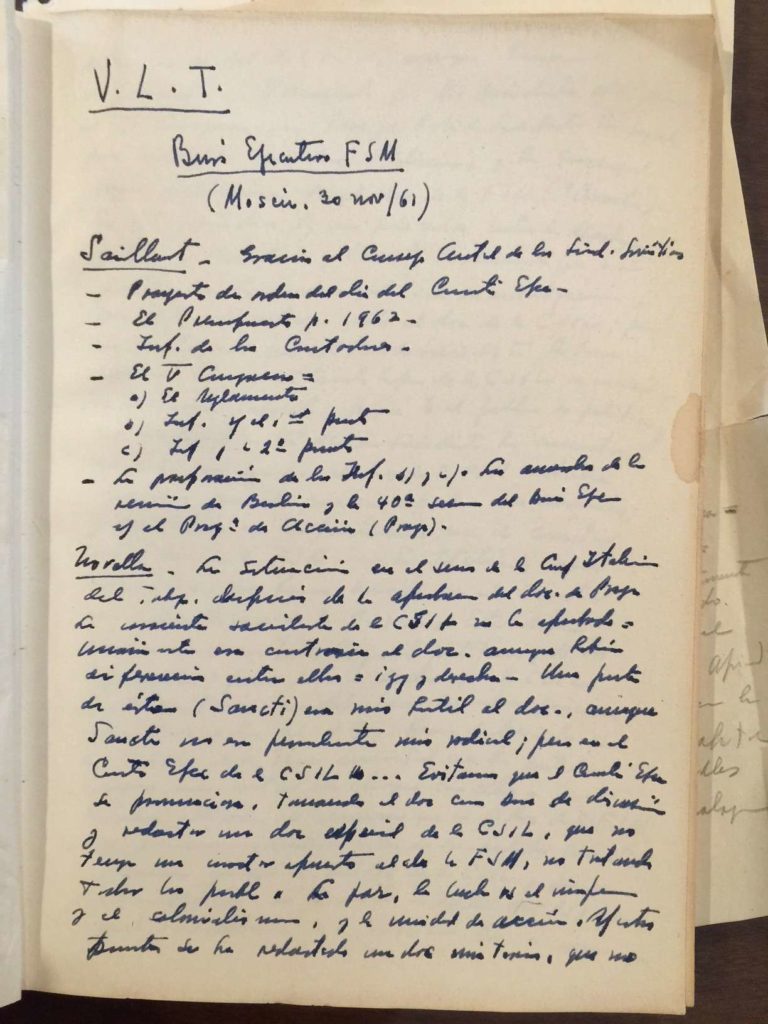 V. L. T.
Buró Ejecutivo FSM
(Moscú. 30 nov/61)
Saillant - Gracias al Consejo Central de los Sind. Soviéticos
- Proyecto de orden del día del Comité Ejec -
- El Presupuesto p. 1962 -
- Inf. de los
- El V Congreso =
a) El reglamento
b) Inf. s/ el 1er punto
c) Inf 2º punto
- La preparación de los Inf. b) y c). Los acuerdos de la
reunión de Berlín y la 40ª sesión del Buró Ejec
s/ el Progª de Acción (Praga).
Novella - La situación en el seno de la Conf Italiana
del Trab. después de la del doc. de Praga
La corriente socialista de la CGIL no lo aprobado =
era contrario al doc. aunque había
diferencias entre ellos = izq y derecha - Una parte
de éstos (Santi) era más hostil al doc., aunque
Santi no es más radical; pero en el
Comté Ejec de la CGIL ... Evitamos que el Comité Ejec
se pronunciase, tomando el doc como base de discusión
y redactar un doc especial de la CGIL, que no
tenga un opuesto al de la FSM, no tratando
todos los probl. La paz, la lucha el
y el colonialismo, y la unidad de acción.
puntos se ha redactado un doc unitario, que no